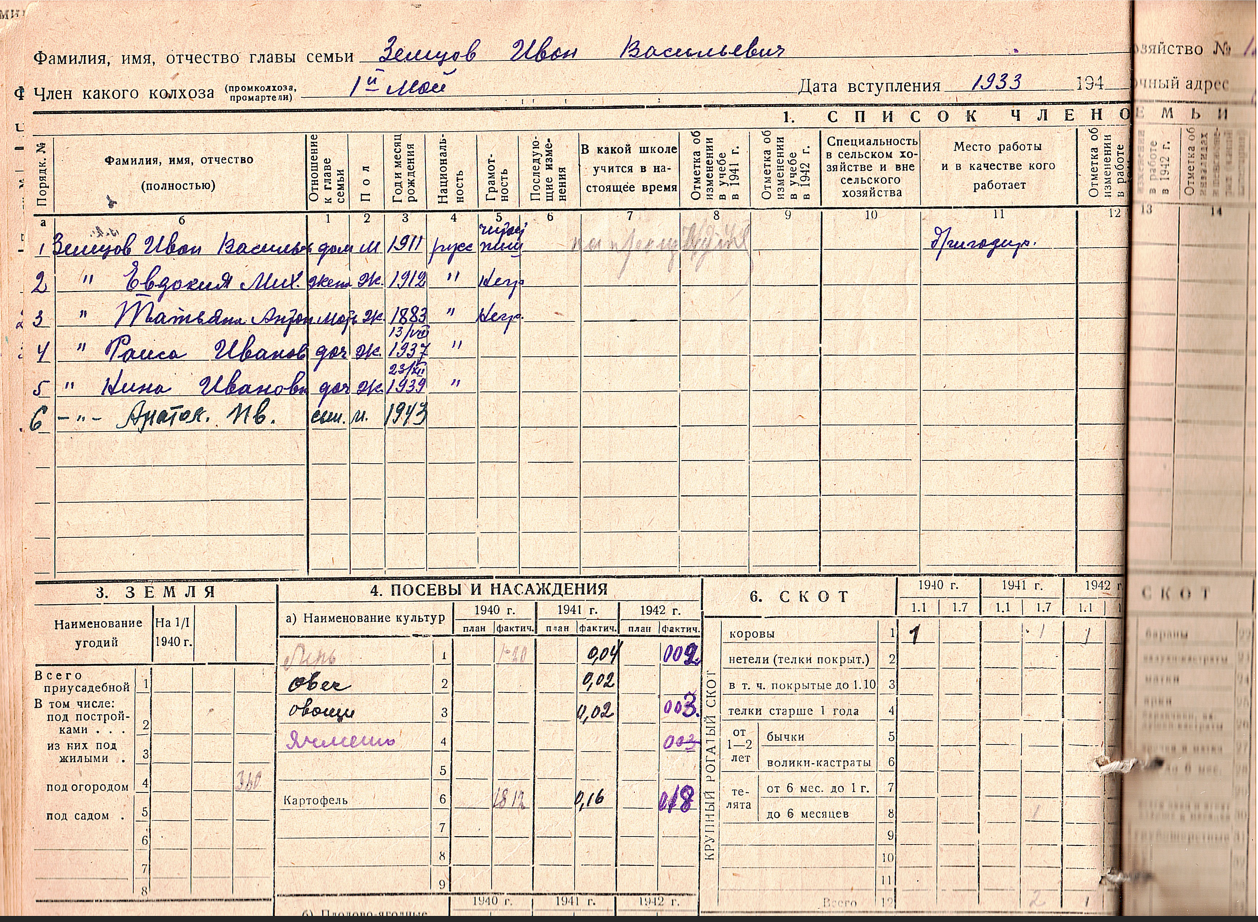 Фамилия, имя, отчество главы семьи Земцов Иван Васильевич
озяйство №
Член какого колхоза (промколхоза, промартели) 1й Май Дата вступления 1933 194
очный адрес
1. СПИСОК ЧЛЕНО
ЕМЬИ
Порядк. №
Фамилия, имя, отчество (полностью)
Отношение к главе семьи
Пол
Год и месяц рождения
Националь-ность
Грамот-ность
Последую-щие изме-нения
В какой школе учится в на-стоящее время
Отметка об изменении в учебе в 1941 г.
Отметка об изменении в учебе в 1942 г.
Специальность в сельском хо-зяйстве и вне сельского хозяйства
Место работы и в качестве кого работает
Отметка об изменении в работе
а б 1 2 3 4 5 6 7 8 9 10 11 12 13 14
1 Земцов Иван Василь дом М 1911 русс бригадир.
2 " Евдокия Мих. жена Ж. 1912 " Негр.
3 " Татьяна Антон мать Ж. 1883 " Негр.
13/VIII
4 " Раиса Иванов доч Ж. 1937 "
23/XII
5 " Нина Ивановн доч Ж. 1939 "
6 -"- Анатол. Ив. сын. м. 1943
3. ЗЕМЛЯ
Наименование угодий
На 1/I 1940 г.
Всего приусадебной 1
В том числе:
под построй-ками . . . 2
из них под жилыми . 3
под огородом 4
под садом . 5
6
7
8
4. ПОСЕВЫ И НАСАЖДЕНИЯ
а) Наименование культур
1940 г. 1941 г. 1942 г.
план фактич. план фактич. план фактич.
1 0,04 002
овес 2 0,02
овощи 3 0,02 003.
Ячмень 4 003
5
Картофель 6 0,16 018
7
8
9
1940 г. 1941 г. 1942 г.
б) Плодово-ягодные
6. СКОТ
1940 г. 1941 г. 1942
1.1 1.7 1.1 1.7 1.1
КРУПНЫЙ РОГАТЫЙ СКОТ
коровы 1 1 1 1
нетели (телки покрыт.) 2
в т. ч. покрытые до 1.10 3
телки старше 1 года 4
от 1—2 лет
бычки 5
волики-кастраты 6
те-лята
от 6 мес. до 1 г. 7
до 6 месяцев 8 1
9
10
11
Всего 12 2 1
СКОТ
бараны
матки